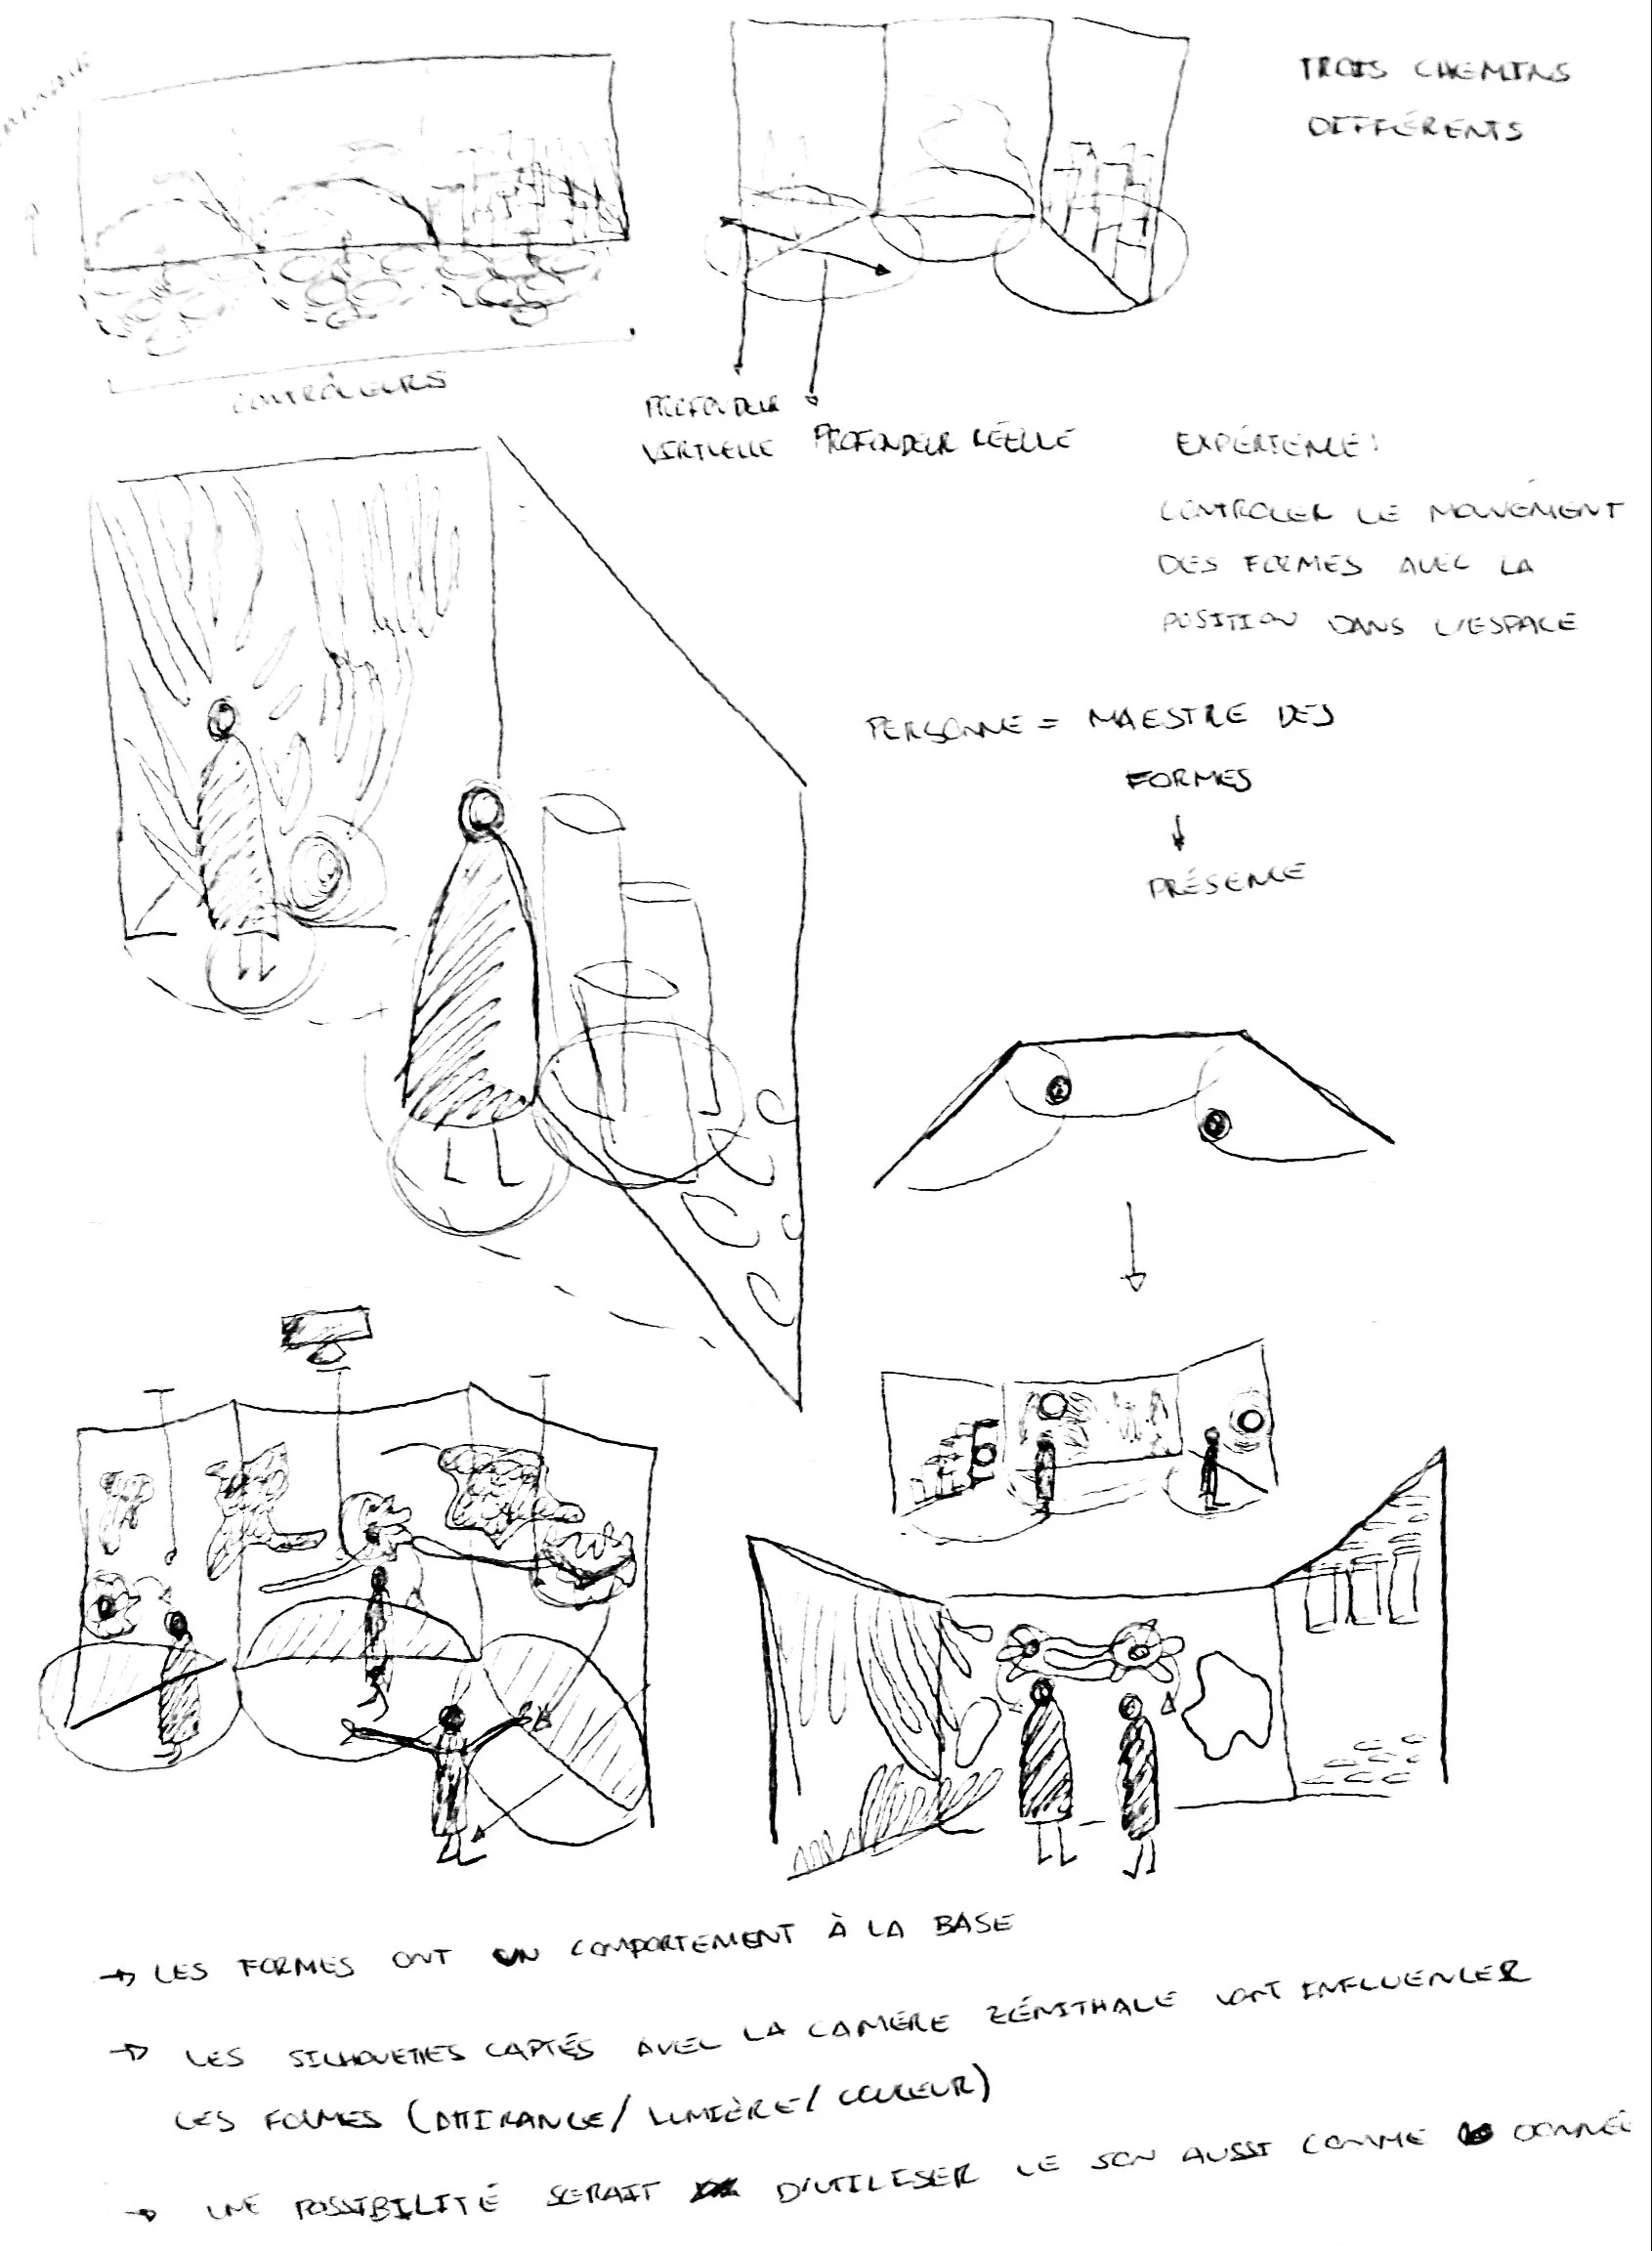 TROIS CHEMINS
DIFFÉRENTS
CONTRÔLEURS
PROFONDEUR
VIRTUELLE
PROFONDEUR RÉELLE
EXPÉRIENCE:
CONTROLER LE MOUVÉMENT
DES FORMES AVEC LA
POSITION DANS L'ESPACE
PERSONNE = MAESTRE DES
FORMES
PRÉSENCE
→ LES FORMES ONT UN COMPORTEMENT À LA BASE
→ LES SILHOUETTES CAPTÉS AVEC LA CAMÉRE ZÉNITHALE VONT INFLUENCER
LES FORMES (ATTIRANCE/ LUMIÈRE/ COULEUR)
→ UNE POSSIBILITÉ SERAIT D'UTILISER LE SON AUSSI COMME DONNÉE